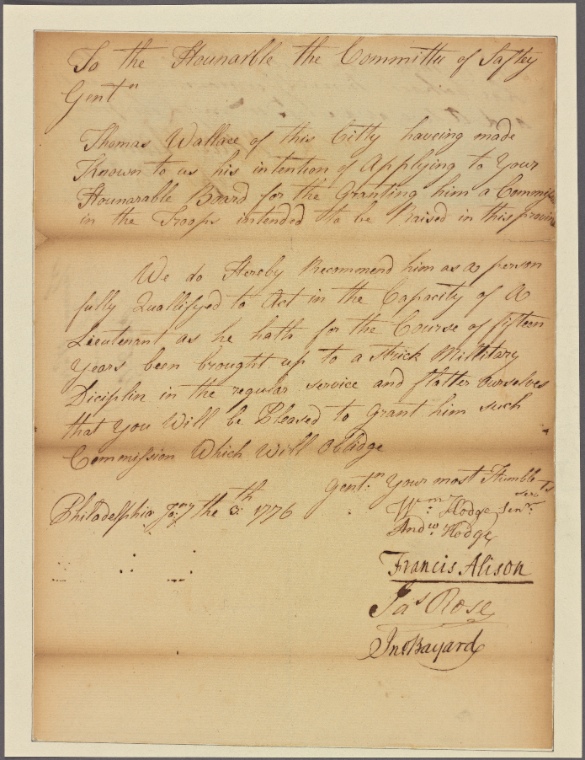 To the Hounarble the Committee of Saftey
Gentn
Thomas Wallace of this Citty haveing made
Known to us his intention of Applying to Your
Hounarable Board for the Granting him a Commis
in the Troops intended to be Raised in this provin
We do Hereby Recommend him as a person
fully Quallifyed to Act in the Capacity of A
Lieutenant as he hath for the Course of fifteen
Years been brought up to a Strick Millitary
Disciplin in the regular service and flatter ourselves
that You Will be Pleased to Grant him such
Commission Which Will Oblidge
Gentn Your most Humble
Philadelphia Jany the 8th 1776
Wm Hodge Senr
Andw Hodge
Francis Alison
Jas Rose
Jno Bayard